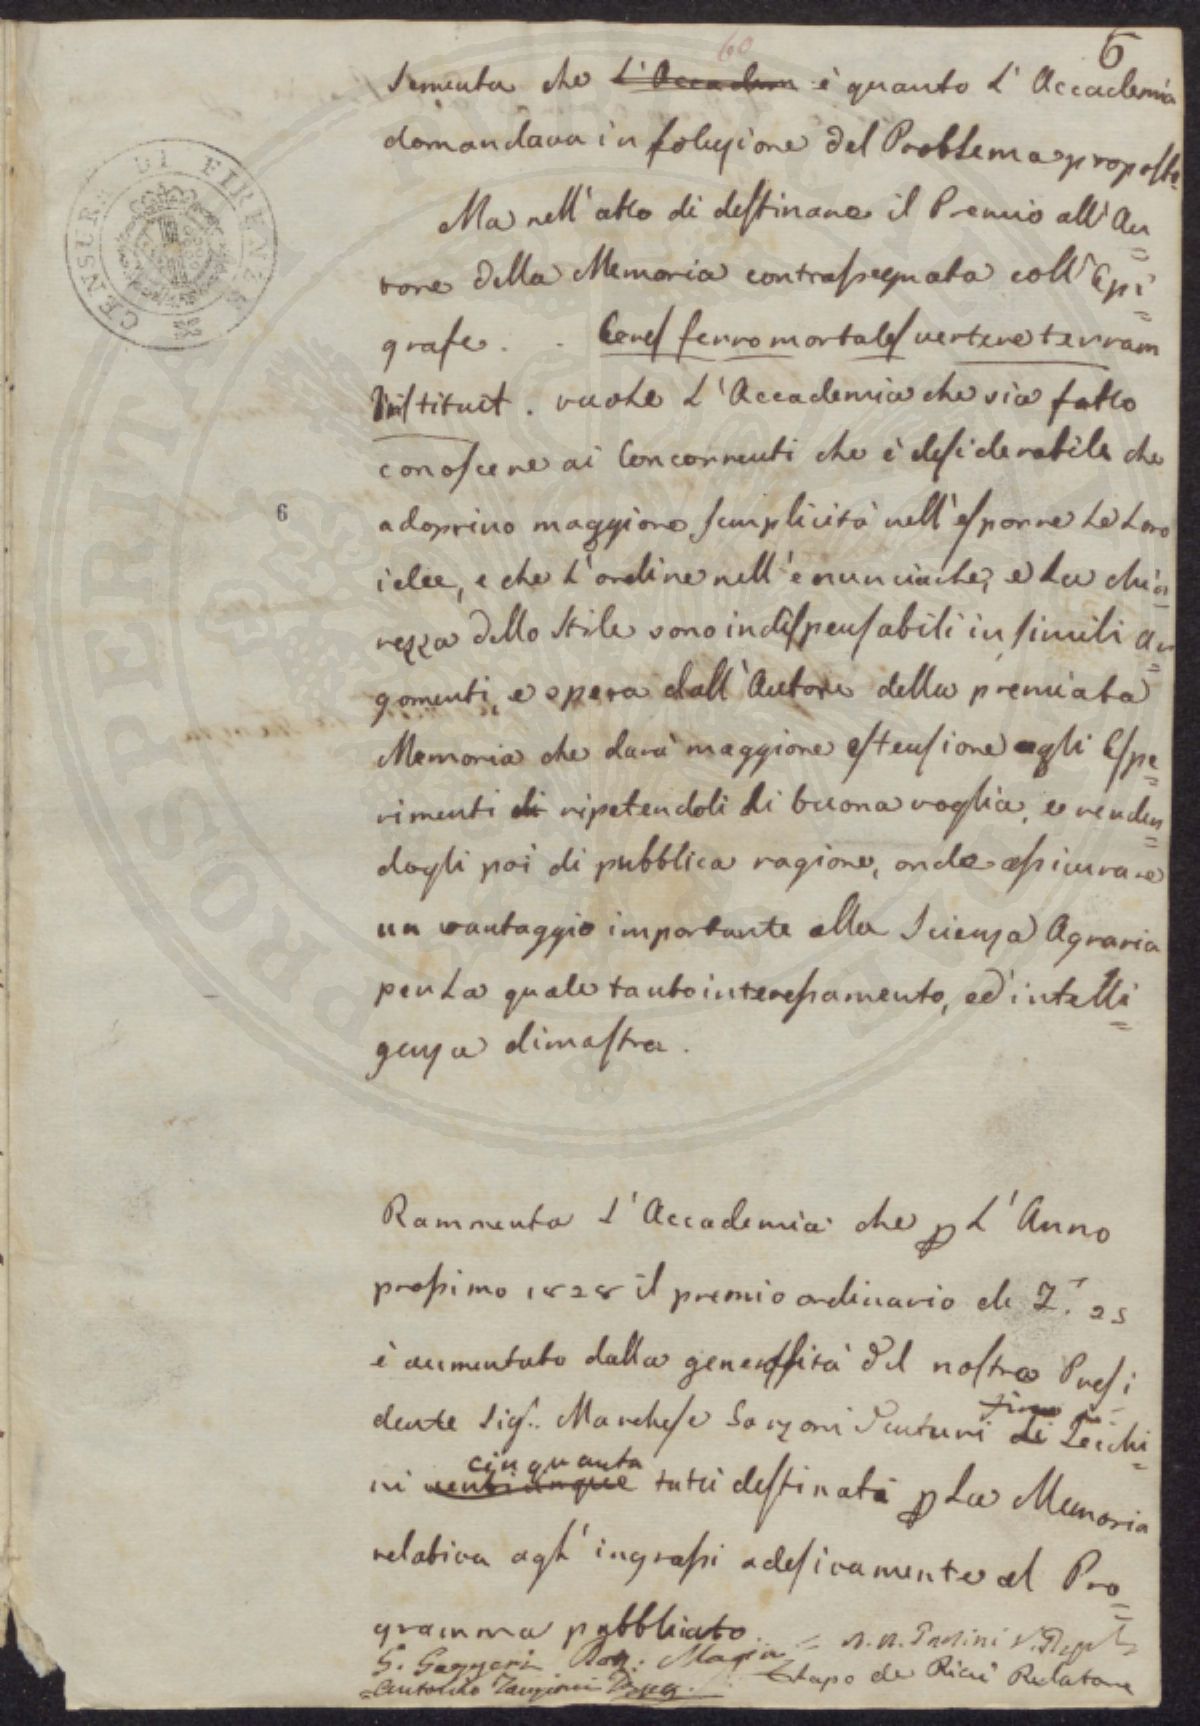 60
6
sementa che L'Accadem è quanto L'Accademia
domandava in soluzione del Problema proposto.
Ma nell'atto di destinare il Premio all'Au=
tore della Memoria contrassegnata coll'Epi=
grafe . . Ceres ferro mortales vertere terram
Instituit . vuole L'Accademia che sia fatto
conoscere ai Concorrenti che è desiderabile che
adoprino maggiore semplicità nell'esporre Le Loro
idee, e che L'ordine nell'enunciarle, e La chia=
rezza dello Stile sono indispensabili in simili Ar=
gomenti, e spera dall'Autore della premiata
Memoria che darà maggiore estensione agli Espe=
rimenti di ripetendoli di buona voglia, e renden=
dogli poi di pubblica ragione, onde assicurare
un vantaggio importante alla Scienza Agraria
per La quale tanto interessamento, ed intelli=
genza dimostra.
Rammenta L'Accademia che p L'Anno
prossimo 1828 il premio ordinario di Z.i 25
è aumentato dalla generosità del nostro Presi=
dente Sig.r Marchese Garzoni Venturi fino Di Zecchi=
ni cinquanta venticinque tutti destinati p La Memoria
relativa agl'ingrassi adesivamente al Pro=
gramma pubblicato.
G. Gazzeri
Antonio Targioni Tozz.
Lapo de Ricci Relatore
CENSURA DI FIRENZE
6